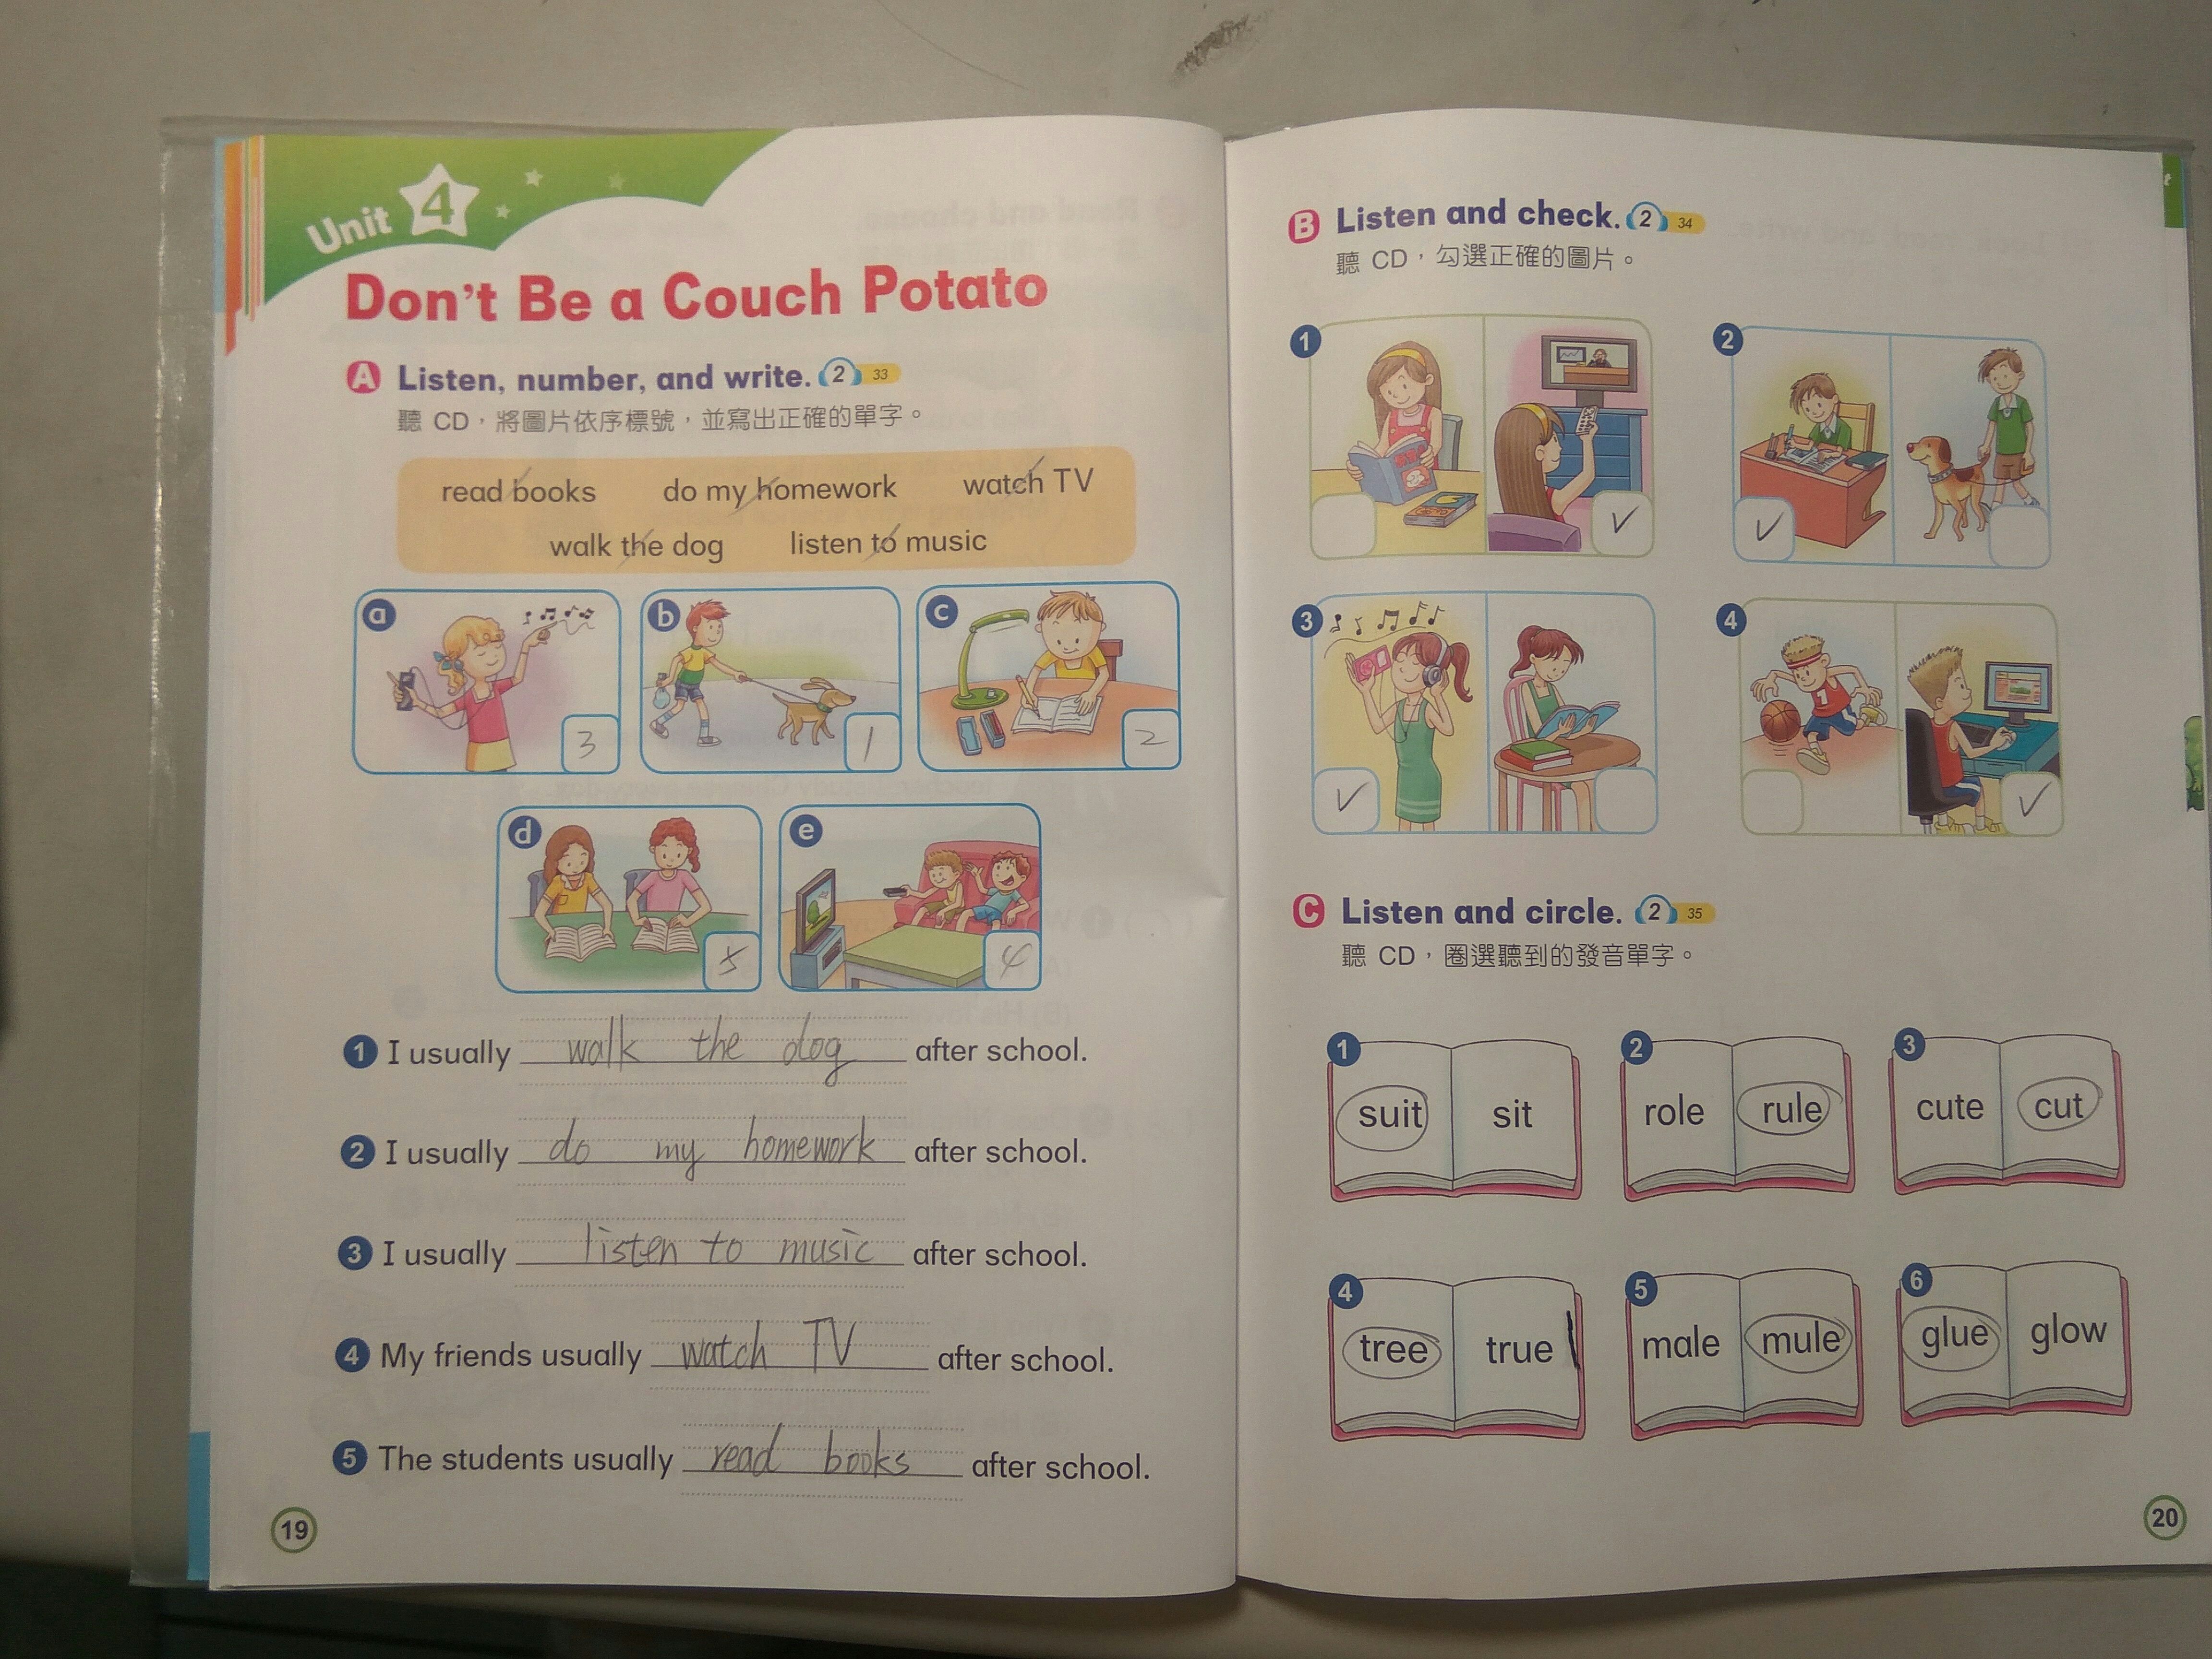 Unit 4
Don't Be a Couch Potato
A Listen, number, and write. 2 33
聽 CD，將圖片依序標號，並寫出正確的單字。
read books do my homework watch TV
walk the dog listen to music
a b c
3 1 2
d e
5 4
1 I usually walk the dog after school.
2 I usually do my homework after school.
3 I usually listen to music after school.
4 My friends usually watch TV after school.
5 The students usually read books after school.
19
B Listen and check. 2 34
聽 CD，勾選正確的圖片。
1 2
3 4
C Listen and circle. 2 35
聽 CD，圈選聽到的發音單字。
1 suit sit 2 role rule 3 cute cut
4 tree true 5 male mule 6 glue glow
20